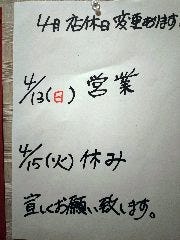 4月店休日変更あります
4/13(日) 営業
4/15(火) 休み
宜しくお願い致します。